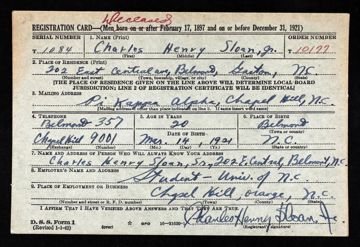 Deceased
REGISTRATION CARD—(Men born on or after February 17, 1897 and on or before December 31, 1921)
SERIAL NUMBER 1. NAME (Print) ORDER NUMBER
T 1084 Charles Henry Sloan, Jr. T 10177
(First) (Middle) (Last)
2. PLACE OF RESIDENCE (Print)
202 East Central Ave, Belmont, Gaston, NC
(Number and street) (Town, township, village, or city) (County) (State)
[THE PLACE OF RESIDENCE GIVEN ON THE LINE ABOVE WILL DETERMINE LOCAL BOARD
JURISDICTION; LINE 2 OF REGISTRATION CERTIFICATE WILL BE IDENTICAL]
3. MAILING ADDRESS
Pi Kappa Alpha, Chapel Hill, N.C.
4. TELEPHONE 5. AGE IN YEARS 6. PLACE OF BIRTH
Belmont 357 20 Belmont
DATE OF BIRTH (Town or county)
Chapel Hill 9001 Mar. 14 1921 N.C.
(Mo.) (Day) (Yr.) (State or country)
7. NAME AND ADDRESS OF PERSON WHO WILL ALWAYS KNOW YOUR ADDRESS
Charles Henry Sloan, Sr, 202 E. Central, Belmont, N.C.
8. EMPLOYER'S NAME AND ADDRESS
Student - Univ. of N.C.
9. PLACE OF EMPLOYMENT OR BUSINESS
Chapel Hill Orange, N.C.
(Number and street or R. F. D. number) (Town) (County) (State)
I AFFIRM THAT I HAVE VERIFIED ABOVE ANSWERS AND THAT THEY ARE TRUE.
D. S. S. Form 1
(Revised 1-1-42) (over) Charles Henry Sloan, Jr.